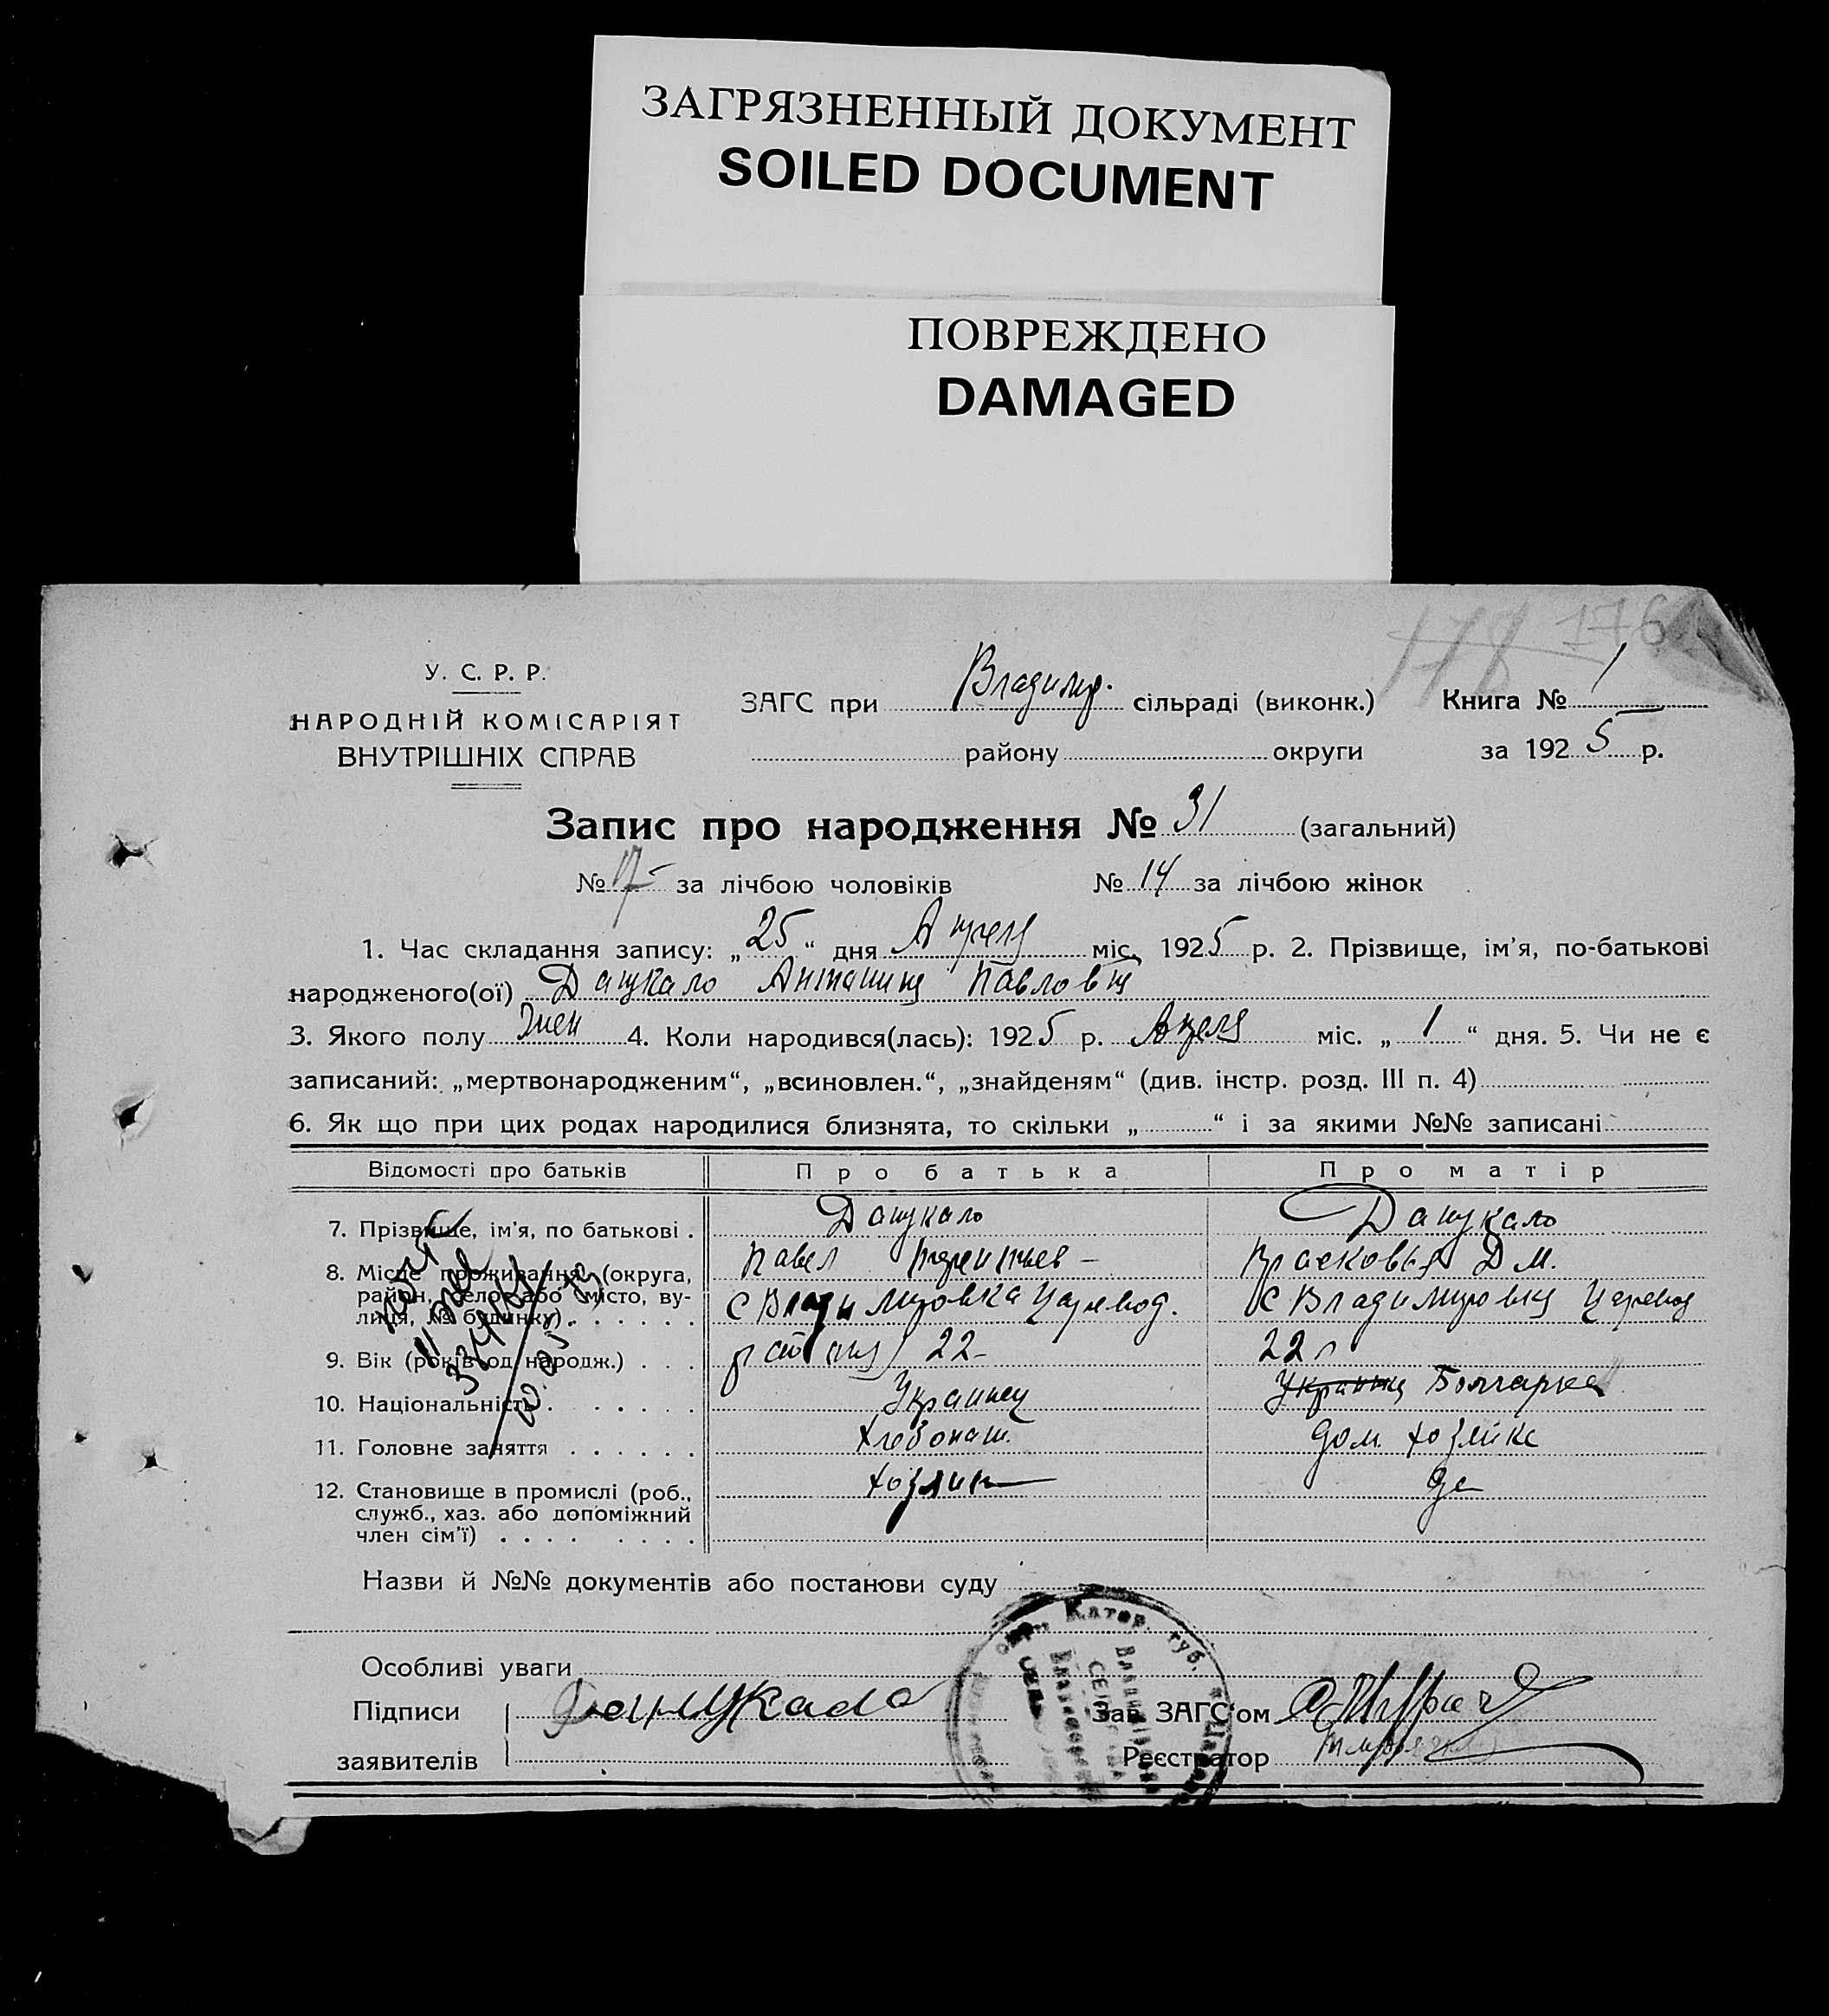 ЗАГРЯЗНЕННЫЙ ДОКУМЕНТ
SOILED DOCUMENT
ПОВРЕЖДЕНО
DAMAGED
178 176
У. С. Р. Р.
НАРОДНІЙ КОМІСАРІЯТ
ВНУТРІШНІХ СПРАВ
ЗАГС при Владимир. сільраді (виконк.) Книга № 1
району округи за 1925 р.
Запис про народження № 31 (загальний)
№ 17 за лічбою чоловіків № 14 за лічбою жінок
1. Час складання запису: „25“ дня Апреля міс. 1925 р. 2. Прізвище, ім'я, по-батькові
народженого(ої) Дацкало Антонина Павловна
3. Якого полу Жен 4. Коли народився(лась): 1925 р. Апреля міс. „1“ дня. 5. Чи не є
записаний: „мертвонародженим“, „всиновлен.“, „знайденям“ (див. інстр. розд. III п. 4)
6. Як що при цих родах народилися близнята, то скільки „ “ і за якими №№ записані
Відомості про батьків Про батька Про матір
7. Прізвище, ім'я, по батькові . Дацкало Дацкало
Павел Терентьев Прасковья Д М.
8. Місце проживання (округа, район, село або місто, вулиця, № будинку) С Владимировка Царевод. С Владимировка Царевод
9. Вік (років од народж.) . . . 22 22 л
10. Національність . Украинец Украинка Болгарка
11. Головне заняття Хлебопаш. Дом. хозяйка
12. Становище в промислі (роб., хозяин
служб., хаз. або допоміжний
член сім'ї)
Назви й №№ документів або постанови суду
Особливі уваги
Підписи
заявителів
Зав. ЗАГС'ом
Реєстратор
Катер. губ.